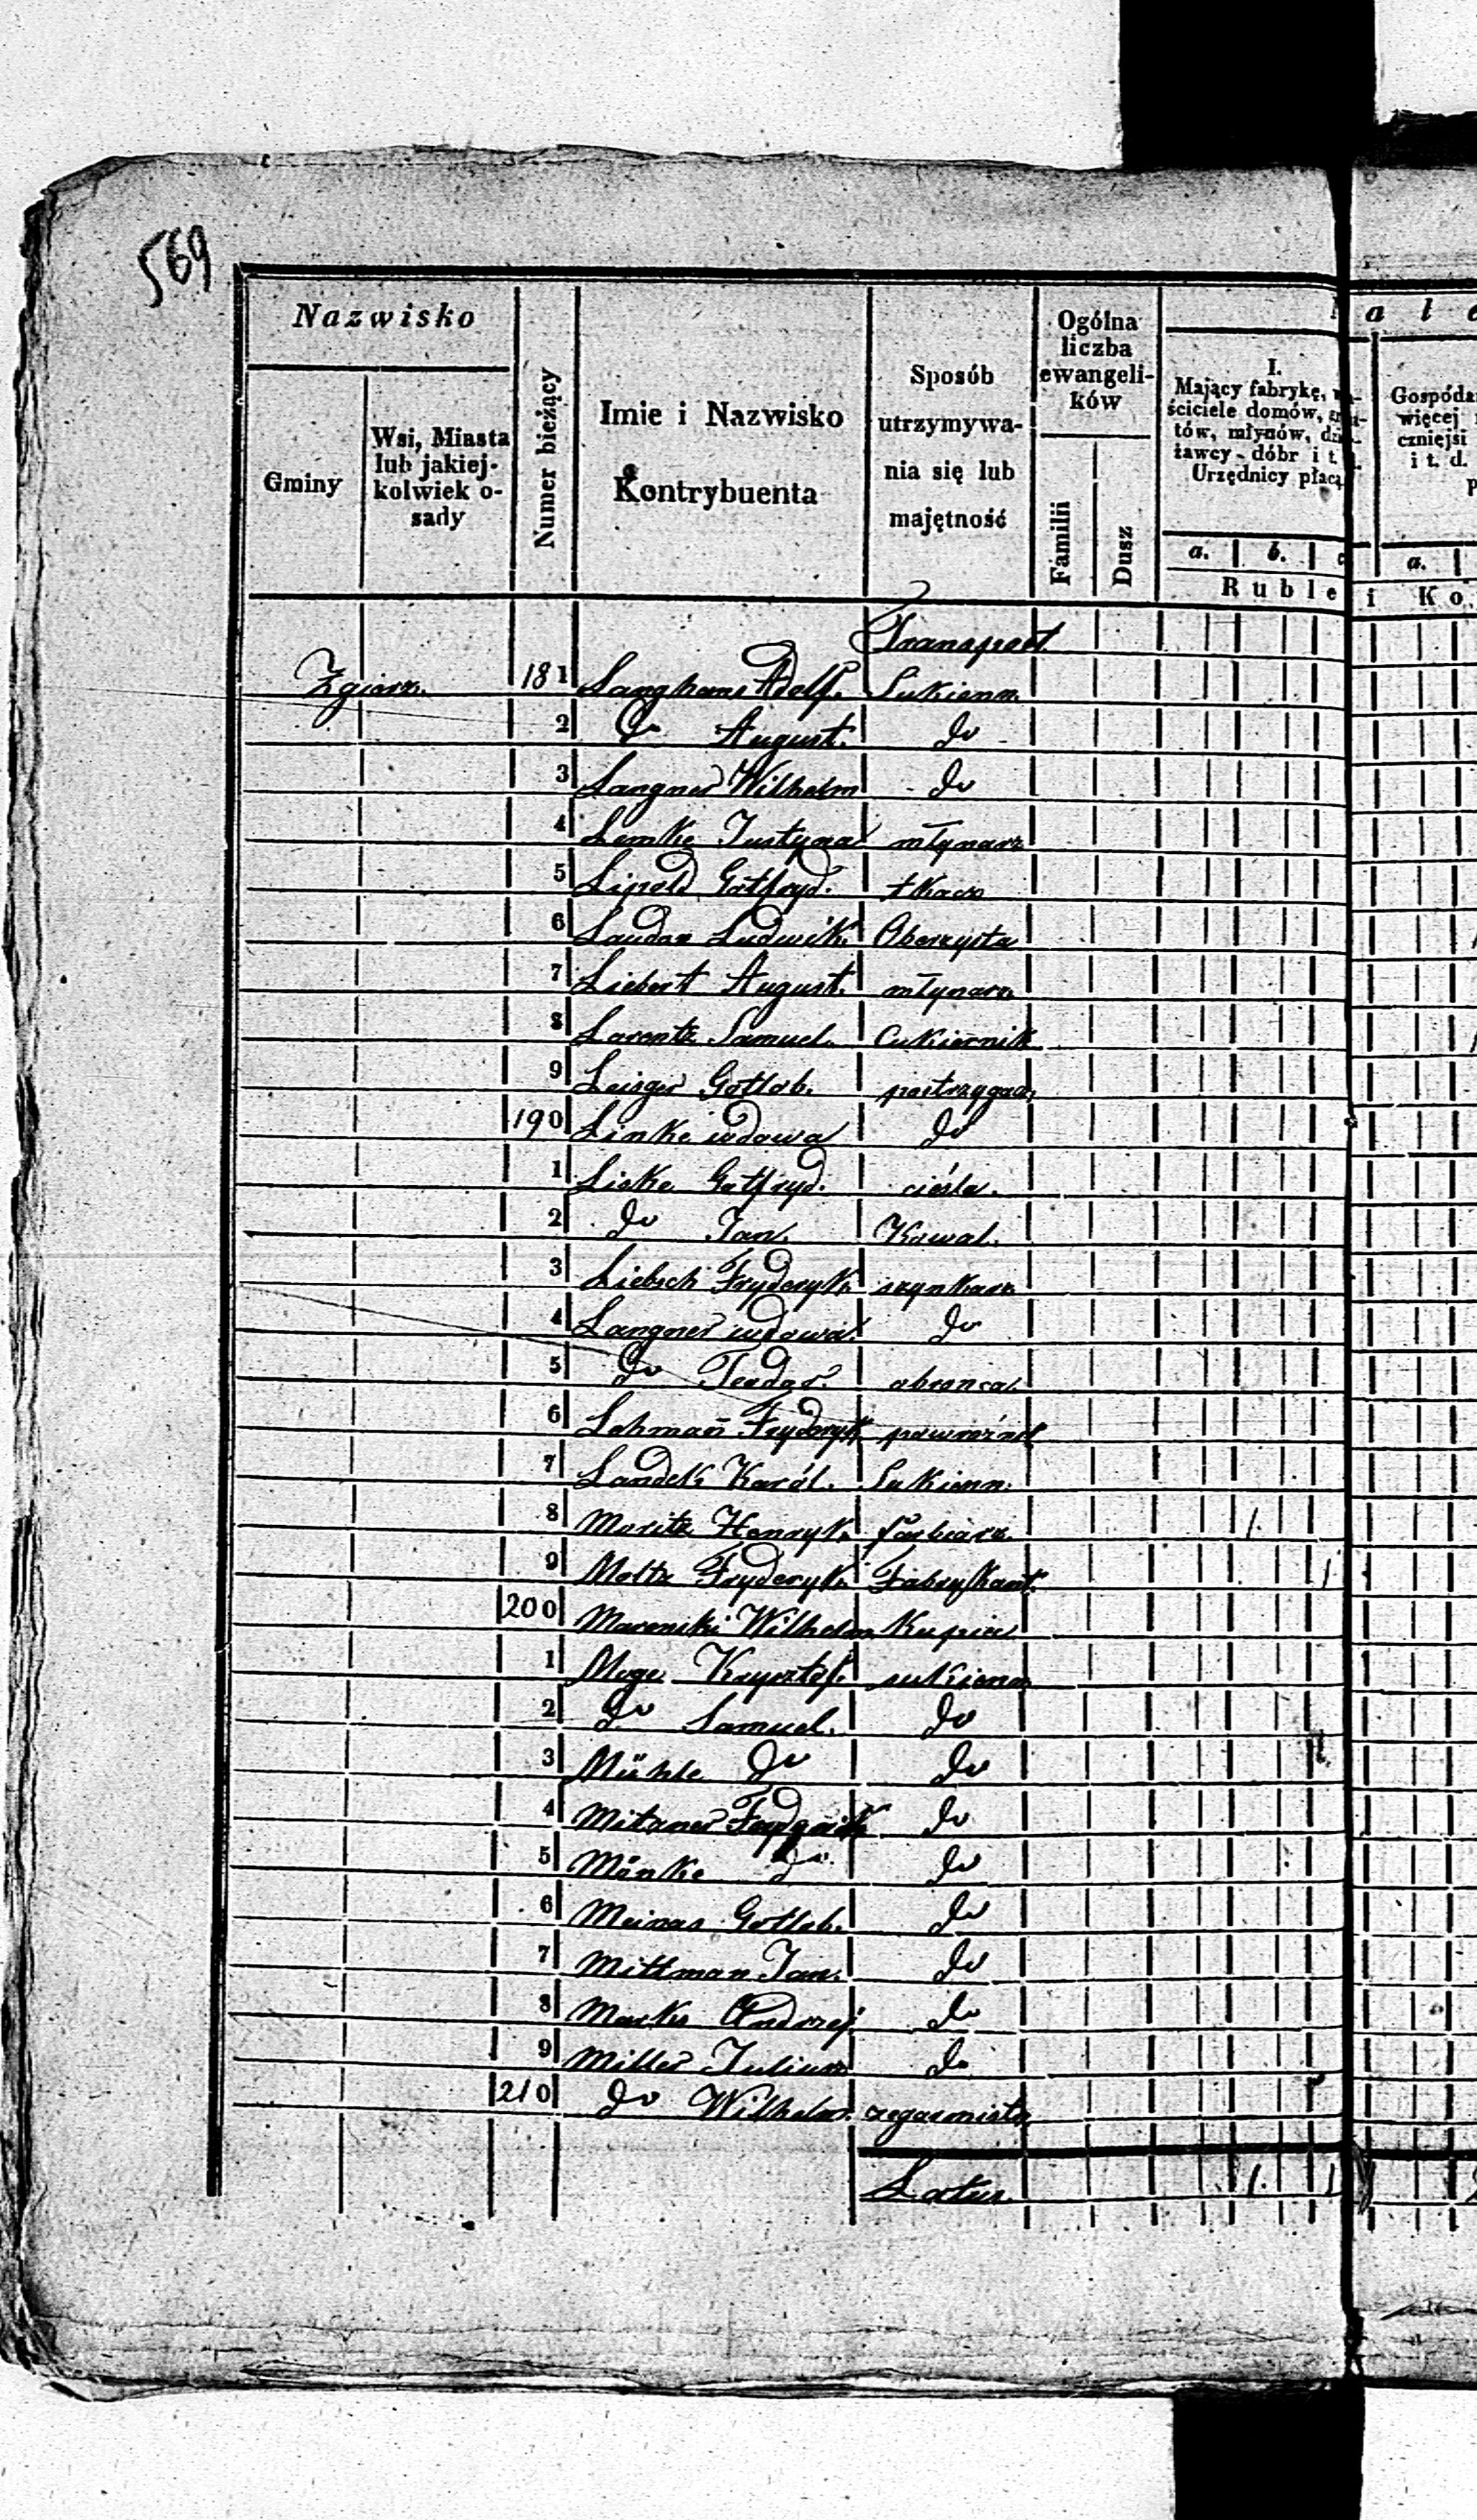 569
Nazwisko
Gminy
Wsi, Miasta
lub jakiej-
kolwiek o-
sady
Numer bieżący
Imie i Nazwisko
Kontrybuenta
Sposób
utrzymywa-
nia się lub
majętność
Ogólna
liczba
ewangeli-
ków
Familii
Dusz
I.
Mający fabrykę,
ściciele domów,
tów, młynów,
żawcy dóbr i t.
Urzędnicy płacą
a. b. c
Ruble i Ko
Gospóda
więcej
czniejsi
i t. d.
p
a.
Transport
Zgierz. 181 Langhans Adolf. Sukienn.
2 do August. do
3 Langner Wilhelm do
4 Lemke Justyna młynarz
5 Lipold Gotfryd. tkacz
6 Laudan Ludwik. Oberzysta
7 Liebert August. młynarz
8 Lorentz Samuel. Cukiernik
9 Leisger Gotlob. postrzygacz
190 Linke wdowa do
1 Liske Gotfryd. cieśla.
2 do Jan. Kowal.
3 Liebsch Fryderyk. szynkarz
4 Langner wdowa. do
5 do Teodor. obronca.
6 Lehmañ Fryderyk. powroźnik
7 Landek Karól. Sukienn.
8 Moritz Henryk. farbiarz. 1.
9 Moltz Fryderyk. Fabrykant. 1
200 Marenski Wilhelm Kupiec
1 Moge Krysztof. sukienn
2 do Samuel. do
3 Mühle do do
4 Mitzner Frydryk do
5 Mönke do do
6 Meinas Gotlob. do
7 Mittman Jan. do
8 Marks Andrzej. do
9 Miller Juliusz do
210 do Wilhelm. zegarmistrz
Latus. 1. 1